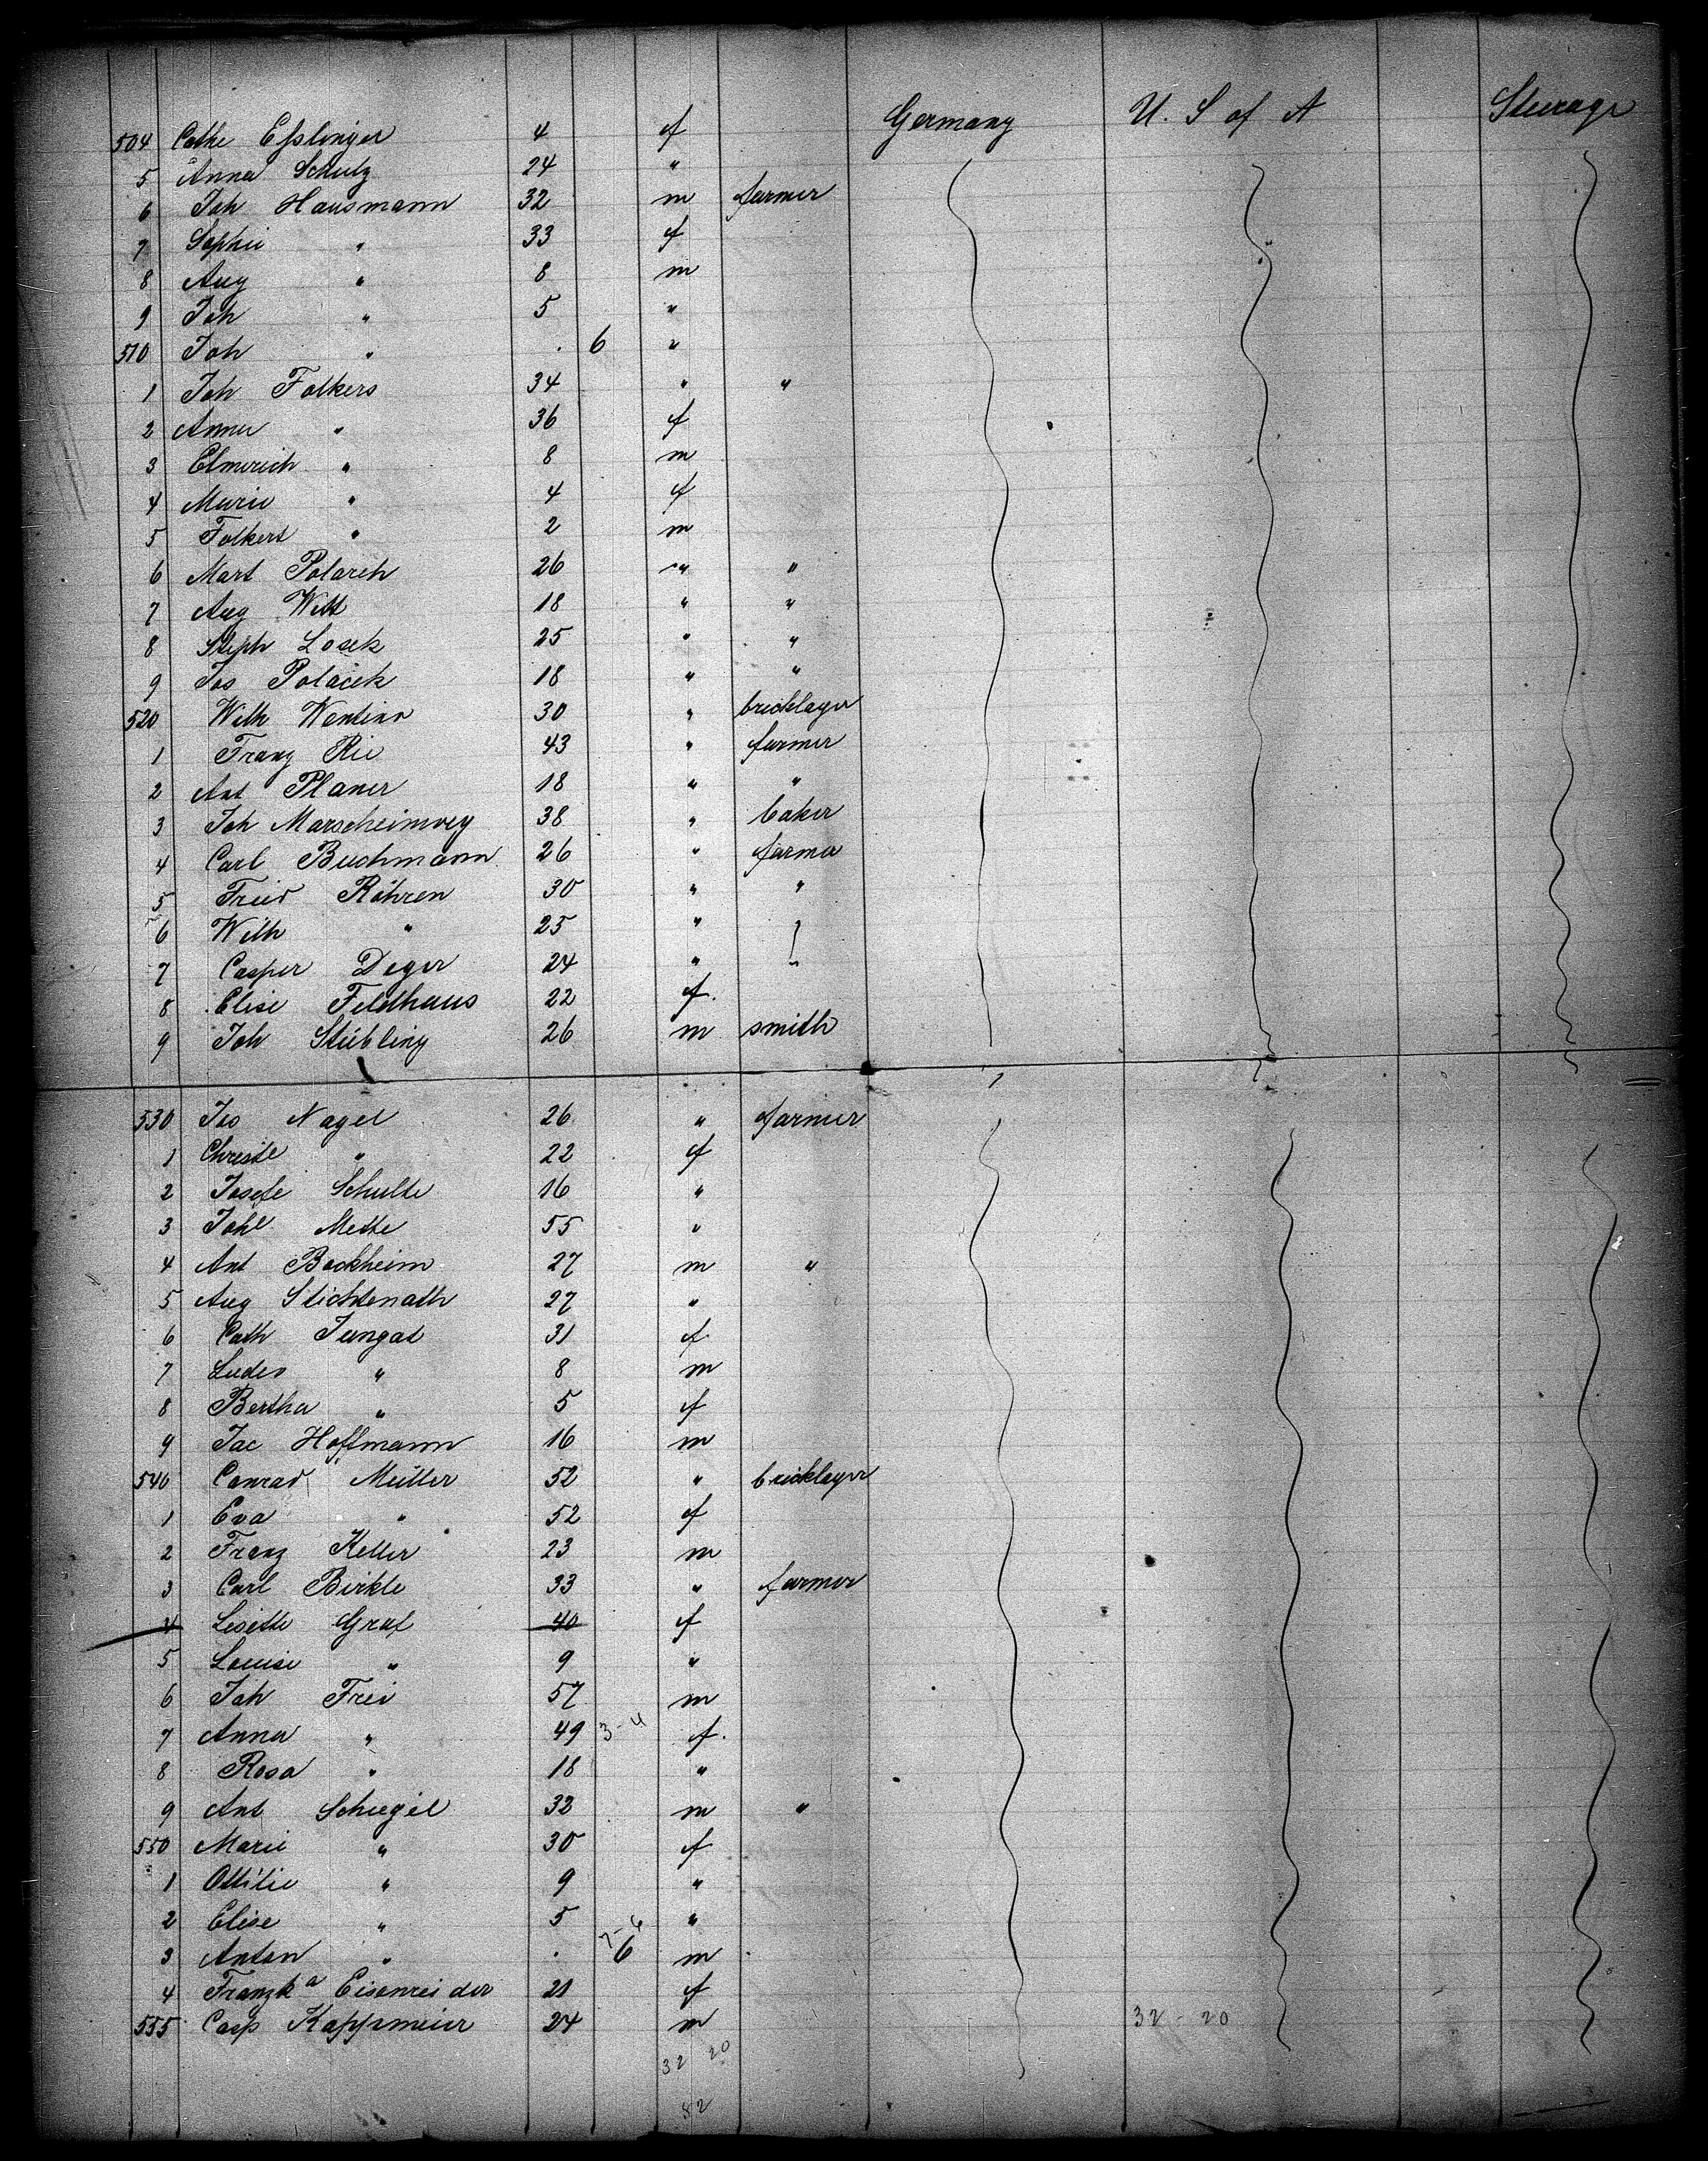 504 Cathe Eſslinger 4 f Germany U. S of A Steerage
5 Anna Schulz 24 "
6 Joh Hausmann 32 m farmer
7 Sophie " 33 f
8 Aug " 8 m
9 Joh " 5 "
510 Joh " . 6 "
1 Joh Folkers 34 " "
2 Anna " 36 f
3 Elmerich " 8 m
4 Marie " 4 f
5 Folkert " 2 m
6 Mart Polareh 26 " "
7 Aug Witt 18 " "
8 Steph Losek 25 " "
9 Jos Polacek 18 " "
520 Wilh 30 " bricklayer
1 Franz Rie 43 " farmer
2 Ant Planer 18 " "
3 Joh Marscheimvey 38 " baker
4 Carl Buchmann 26 " farmer
5 Fried Röhren 30 " "
6 Wilh " 25 "
7 Casper Deger 24 " "
8 Elise Feldhaus 22 f.
9 Joh Stübling 26 m smith
530 Jos Nagel 26 " farmer
1 Christe " 22 f
2 Josefe Schulte 16 "
3 Johe Mette 55 "
4 Ant Bockheim 27 m "
5 Aug Stichtenath 27 "
6 Cath Jungat 31 f
7 Luder " 8 m
8 Bertha " 5 f
9 Jac Hoffmann 16 m
540 Conrad Müller 52 " bricklayer
1 Eva " 52 f
2 Franz Keller 23 m
3 Carl Birkle 33 " farmer
4 Lisette Graf 40 f
5 Louise " 9 "
6 Joh Frei 57 m
7 Anna " 49 3-4 f.
8 Rosa " 18 "
9 Ant Schiegel 32 m "
550 Marie " 30 f
1 Ottilie " 9 "
2 Elise " 5 "
3 Anton " . 6 m
4 Franzka Eisenreider 21 f
555 Casp Kappsmeier 24 m 32-20
32 20
52